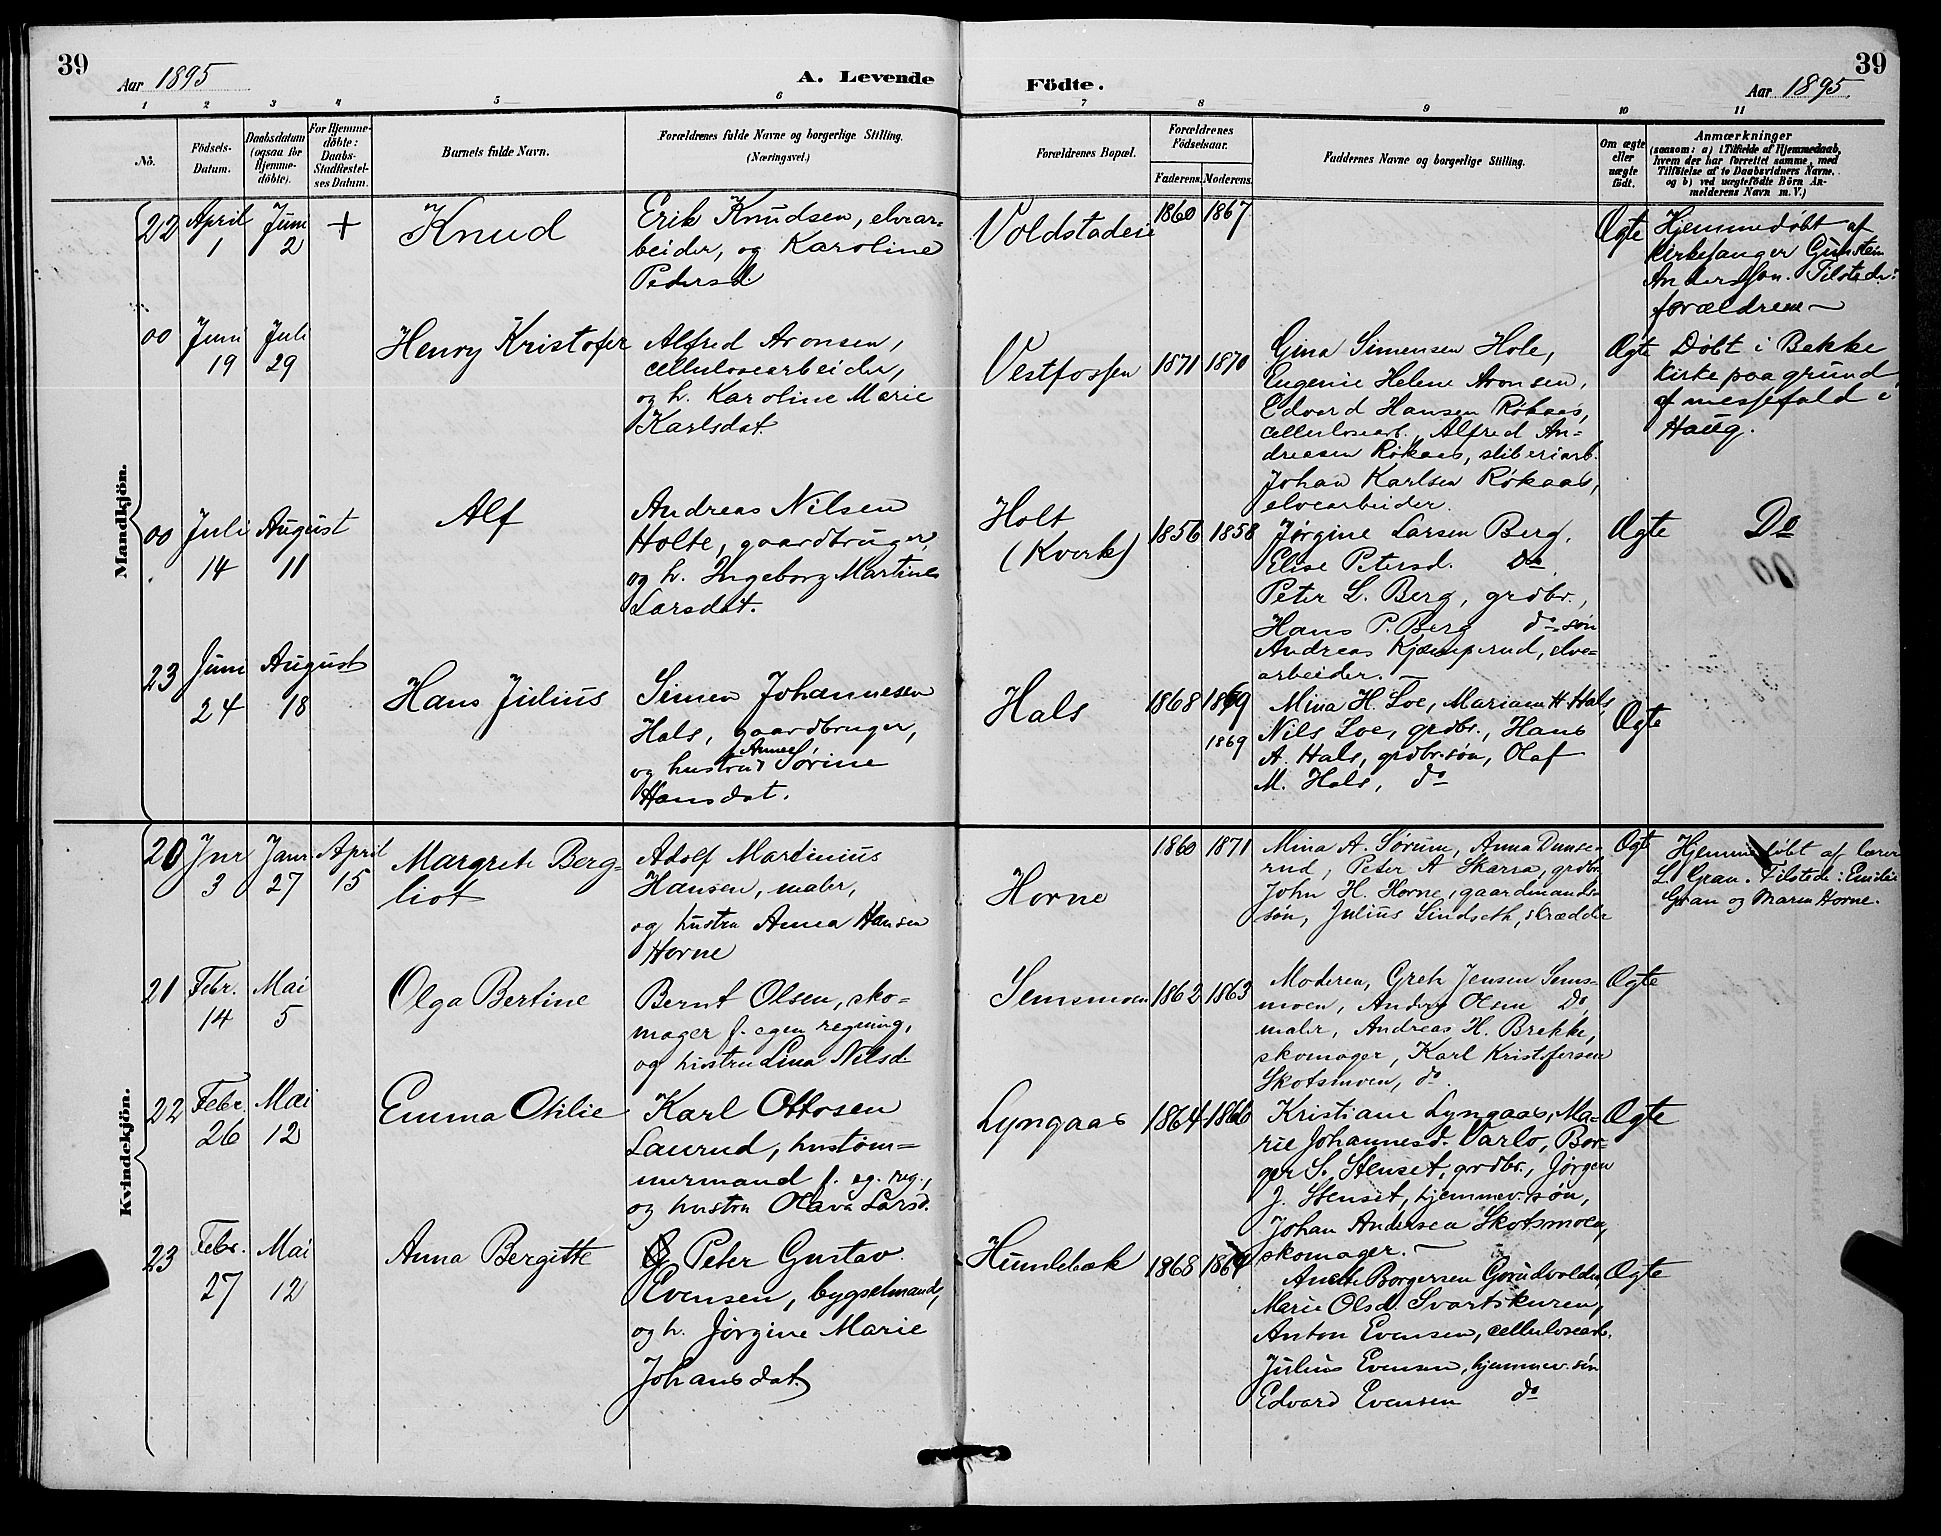 39
Aar 1895
A. Levende
Födte.
Aar 1895.
39
1 2 3 4 5 6 7 8 9 10 11
No.
Födsels-
Datum.
Daabsdatum
(ogsaa for
Hjemme-
döbte).
For Hjemme-
döbte:
Daabs-
Stadfæstel-
ses Datum.
Barnets fulde Navn.
Forældrenes fulde Navne og borgerlige Stilling.
(Næringsvei.)
Forældrenes Bopæl.
Forældrenes
Födselsaar.
Faderens. Moderens.
Faddernes Navne og borgerlige Stilling.
Om ægte
eller
uægte
födt.
Anmærkninger
(saasom: a) i Tilfælde af Hjemmedaab,
hvem der har forrettet samme, med
Tilføielse af to Daabsvidners Navne,
og b) ved uægtefödte Börn An-
melderens Navn m. V.)
Mandkjön.
22
April
1
Juni
2
+
Knud
Erik Knudsen, elvear-
beider, og Karoline
Pedersd.
Voldstadeie
1860 1867
Ægte
Hjemmedøbt af
kirkesanger Gunstein
Anderssøn. Tilstede:
forældrene
00
Juni
19
Juli
29
Henry Kristofer
Alfred Aronsen,
cellulosearbeider,
og h. Karoline Marie
Karlsdat.
Vestfossen
1871 1870
Gina Simensen Hole,
Eugenie Helene Aronsen,
Edvard Hansen Røkaas,
cellulosearb., Alfred An-
dreasen Røkaas, sliberiarb.
Johan Karlsen Røkaas,
elvearbeider.
Ægte
Døbt i Bakke
kirke paa grund
af messefald i
Haug.
00
Juli
14
August
11
Alf
Andreas Nilsen
Holte, gaardbruger,
og h. Ingeborg Martine
Larsdat.
Holt
(Kverk)
1856 1858
Jørgine Larsen Berg,
Elise Petersd. Do
Peter L. Berg, grdbr.,
Hans P. Berg do søn
Andreas Kjæmperud, elve-
arbeider.
Ægte
Do
23
Juni
24
August
18
Hans Julius
Simen Johannesen
Hals, gaardbruger,
og hustru Anne Sørine
Hansdat.
Hals
1868 1869
1869
Mina H. Loe, Mariam H. Hals,
Nils Loe, grdbr., Hans
A. Hals, grdbr.søn, Olaf
M. Hals, do
Ægte
Kvindekjön.
20
Jnr
3
Janr.
27
April
15
Margrete Berg-
liot
Adolf Martinius
Hansen, maler,
og hustru Anna Hansen
Horne
Horne
1860 1871
Mina A. Sørum, Anna Dunse-
rud, Peter A Skarra, grdbr.
John H. Horne, gaardmands-
søn, Julius Lindseth, skrædder
Ægte
Hjemmedøbt af lærer
L. Gran. Tilstede: Emilie
Gran og Maren Horne.
21
Febr.
14
Mai
5
Olga Bertine
Bernt Olsen, sko-
mager f. egen regning,
og hustru Lina Nilsd.
Semsmoen
1862 1863
Moderen, Grete Jensen Sems-
moen, Anders Olsen Do,
maler, Andreas H. Brekke,
skomager, Karl Kristofersen
Skotsmoen, do.
Ægte
22
Febr.
26
Mai
12
Emma Otilie
Karl Ottosen
Laurud, hustøm-
mermand f. eg. reg.,
og hustru Olava Larsd.
Lyngaas
1864 1866
Kristiane Lyngaas, Ma-
rie Johannesd. Varlo, Bor-
ger S. Stenset, grdbr., Jørgen
J. Stenset, hjemmev. søn,
Johan Andersen Skotsmoen,
skomager.
Ægte
23
Febr.
27
Mai
12
Anna Bergitte
Peter Gustav
Evensen, bygselmand,
og h. Jørgine Marie
Johansdat.
Hundebæk
1868 1864
Anette Borgersen Grudvolden,
Marie Olsd. Svartskuren,
Anton Evensen, cellulosearb.
Julius Evensen, hjemmev. søn
Edvard Evensen do
Ægte